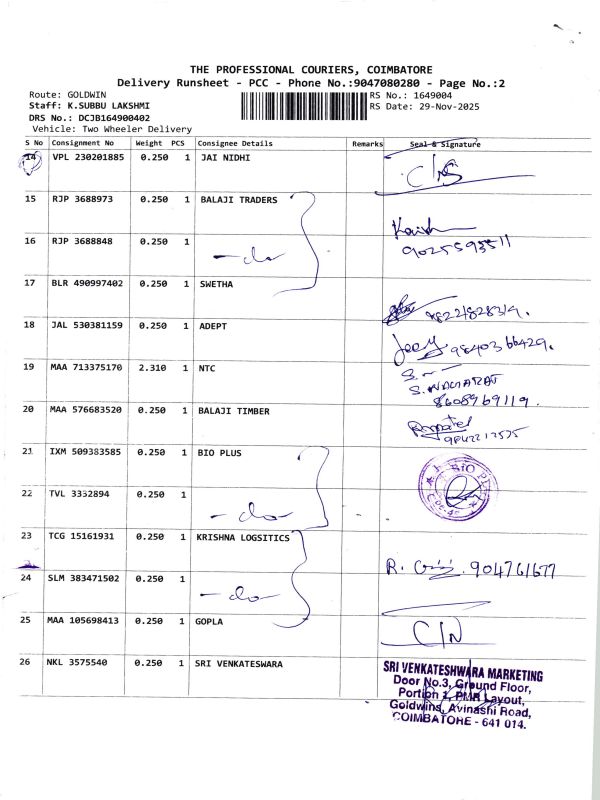 THE PROFESSIONAL COURIERS, COIMBATORE
Delivery Runsheet - PCC - Phone No.:9047080280 - Page No.:2
Route: GOLDWIN
RS No.: 1649004
Staff: K.SUBBU LAKSHMI
RS Date: 29-Nov-2025
DRS No.: DCJB164900402
Vehicle: Two Wheeler Delivery
S No Consignment No Weight PCS Consignee Details Remarks Seal & Signature
14 VPL 230201885 0.250 1 JAI NIDHI
15 RJP 3688973 0.250 1 BALAJI TRADERS
16 RJP 3688848 0.250 1 -do-
9025593511
17 BLR 490997402 0.250 1 SWETHA
18 JAL 530381159 0.250 1 ADEPT
9840366429.
19 MAA 713375170 2.310 1 NTC
8608969119.
20 MAA 576683520 0.250 1 BALAJI TIMBER
21 IXM 509383585 0.250 1 BIO PLUS
22 TVL 3332894 0.250 1 -do-
23 TCG 15161931 0.250 1 KRISHNA LOGSITICS
R. 904761677
24 SLM 383471502 0.250 1 -do-
25 MAA 105698413 0.250 1 GOPLA
26 NKL 3575540 0.250 1 SRI VENKATESWARA
SRI VENKATESHWARA MARKETING
Door No.3, Ground Floor,
Portion 1, PMR Layout,
Goldwins, Avinashi Road,
COIMBATORE - 641 014.